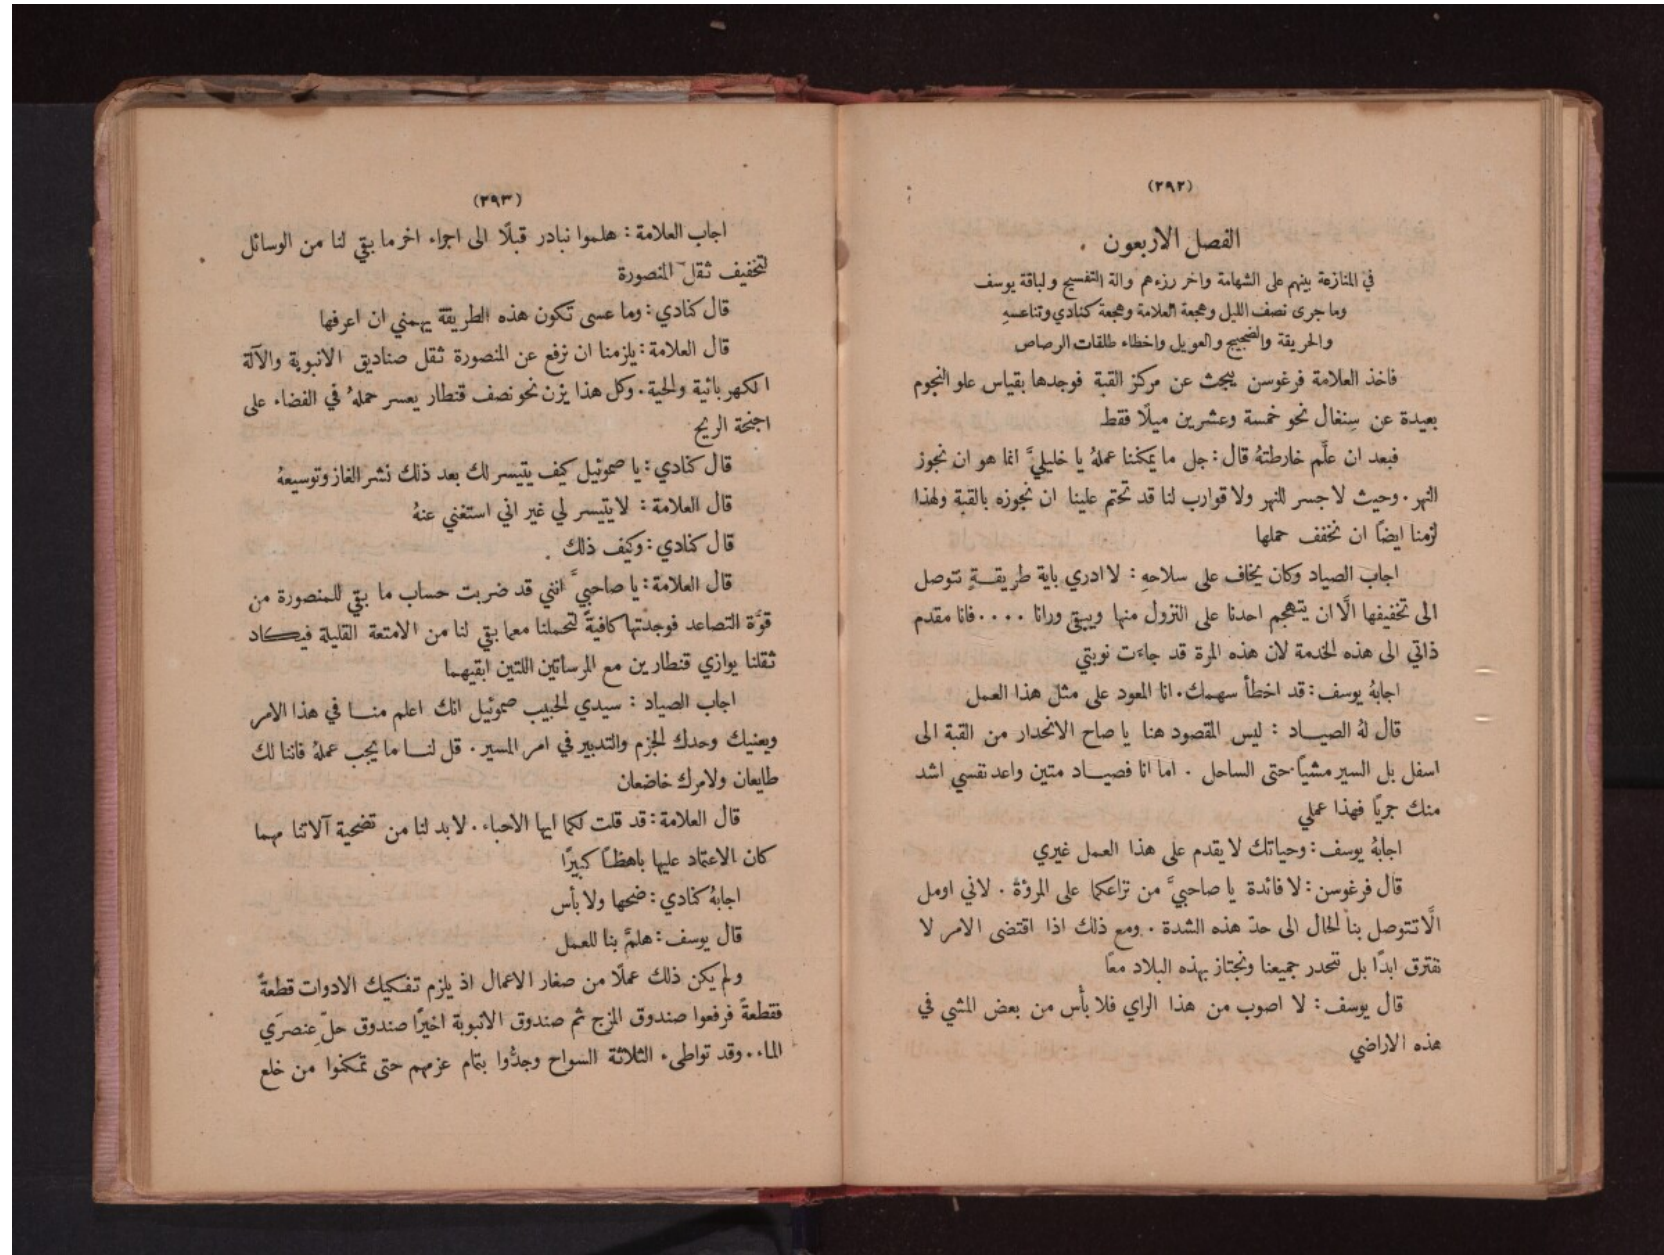 (٢٩٢)
الفصل الاربعون
في المنازعة بينهم على الشهامة واخر رزءهم والة التفسيح ولباقة يوسف
وما جرى نصف الليل وهجعة العلامة وهجعة كنادي وتناعسهِ
والحريقة والضجيج والعويل واخطاء طلقات الرصاص
فاخذ العلامة فرغوسن يبحث عن مركز القبة فوجدها بقياس علو النجوم
بعيدة عن سِنغال نحو خمسة وعشرين ميلًا فقط
فبعد ان علَّم خارطتهُ قال: جل ما يمكننا عملهُ يا خليليَّ انما هو ان نجوز
النهر. وحيث لا جسر للنهر ولا قوارب لنا قد تحتم علينا ان نجوزه بالقبة ولهذا
لزمنا ايضًا ان نخفف حملها
اجاب الصياد وكان يخاف على سلاحهِ: لا ادري باية طريقــةٍ نتوصل
الى تخفيفها الَّا ان يتهجم احدنا على النزول منها ويبقى ورانا ٠٠٠٠ فانا مقدم
ذاتي الى هذه الخدمة لان هذه المرة قد جاءَت نوبتي
اجابهُ يوسف: قد اخطأ سهمك. انا المعود على مثل هذا العمل
قال لهُ الصيــاد : ليس المقصود هنا يا صاح الانحدار من القبة الى
اسفل بل السير مشيًا حتى الساحل . اما انا فصيــاد متين واعد نفسي اشد
منك جريًا فهذا عملي
اجابهُ يوسف: وحياتك لا يقدم على هذا العمل غيري
قال فرغوسن: لا فائدة يا صاحبيَّ من نزاعكما على المروَّة . لاني اومل
الَّا تتوصل بنا الحال الى حدّ هذه الشدة . ومع ذلك اذا اقتضى الامر لا
نفترق ابدًا بل نتحدر جميعنا ونجتاز بهذه البلاد معًا
قال يوسف: لا اصوب من هذا الراي فلا بأس من بعض المشي في
هذه الاراضي
(٢٩٣)
اجاب العلامة: هلموا نبادر قبلًا الى اجراء اخر ما بقي لنا من الوسائل
لتخفيف ثقل المنصورة
قال كنادي: وما عسى تكون هذه الطريقة يهمني ان اعرفها
قال العلامة: يلزمنا ان نرفع عن المنصورة ثقل صناديق الانبوبة والآلة
الكهربائية والحية. وكل هذا يزن نحو نصف قنطار يعسر حملهُ في الفضاء على
اجنحة الريح
قال كنادي: يا صموئيل كيف يتيسر لك بعد ذلك نشر الغاز وتوسيعهُ
قال العلامة: لا يتيسر لي غير اني استغني عنهُ
قال كنادي: وكيف ذلك
قال العلامة: يا صاحبيَّ انني قد ضربت حساب ما بقي للمنصورة من
قوَّة التصاعد فوجدتها كافيةً لتحملنا معما بقي لنا من الامتعة القليلة فيكاد
ثقلنا يوازي قنطارين مع المرساتين اللتين ابقيهما
اجاب الصياد : سيدي الحبيب صموئيل انك اعلم منــا في هذا الامر
ويعنيك وحدك الجزم والتدبير في امر المسير. قل لنــا ما يجب عملهُ فاننا لك
طايعان ولامرك خاضعان
قال العلامة: قد قلت لكما ايها الاحباء. لا بد لنا من تضحية آلاتنا مهما
كان الاعتماد عليها باهظًا كبيرًا
اجابهُ كنادي: ضحها ولا بأس
قال يوسف: هلمَّ بنا للعمل
ولم يكن ذلك عملًا من صغار الاعمال اذ يلزم تفكيك الادوات قطعةً
فقطعةً فرفعوا صندوق المزج ثم صندوق الانبوبة اخيرًا صندوق حلّ عنصرَي
الماء. وقد تواطىء الثلاثة السواح وجدُّوا بتمام عزمهم حتى تمكنوا من خلع